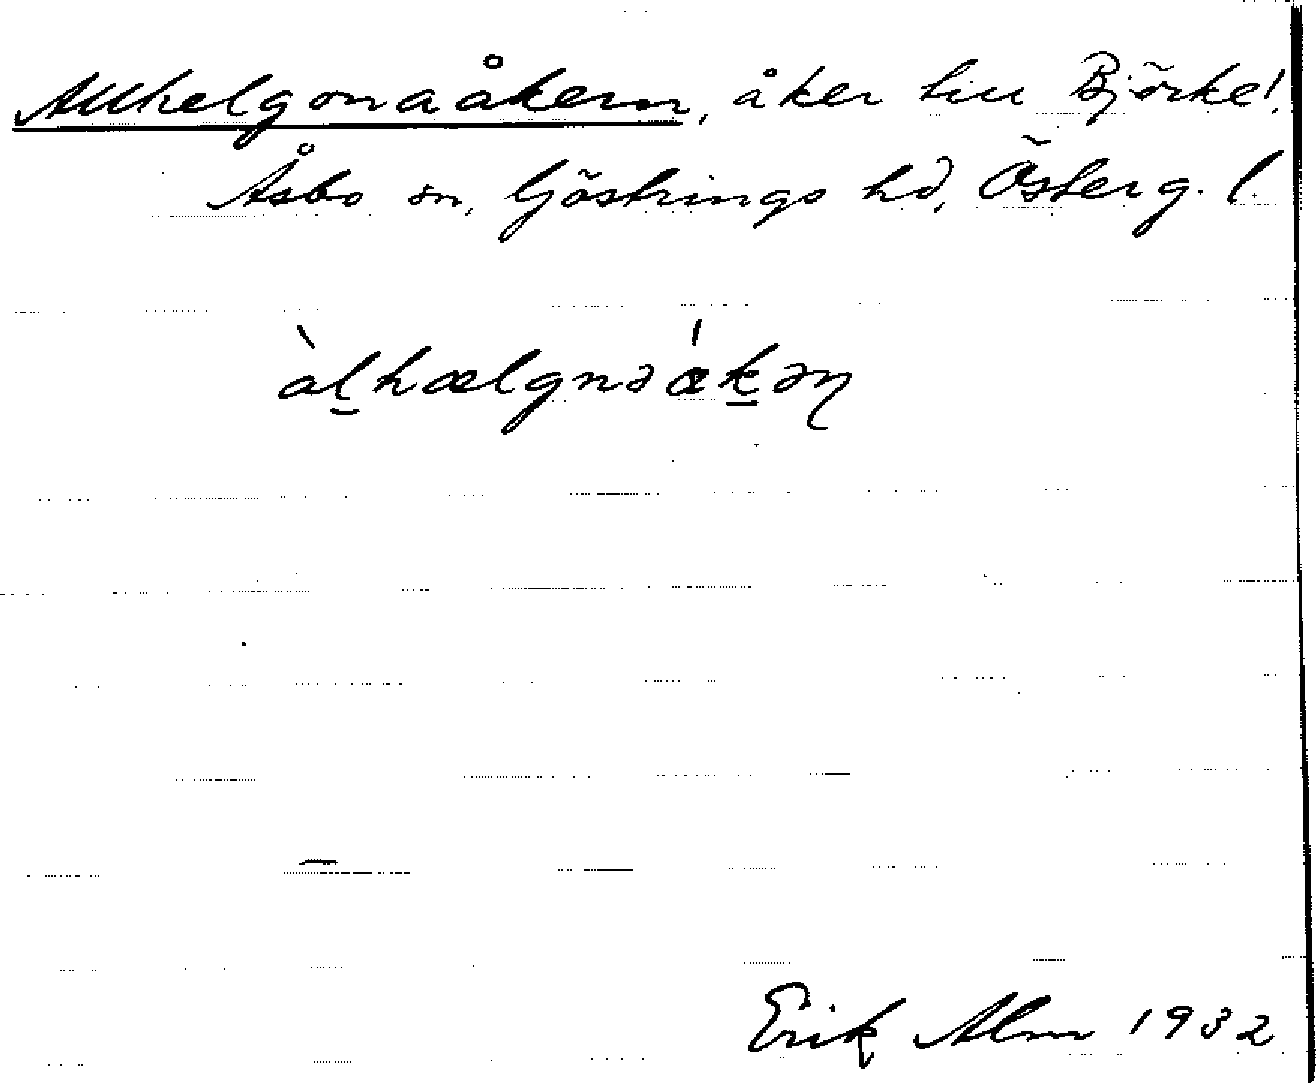 Allhelgonaåkern, åker till Björke!,
Åsbo sn, Göstrings hd, Österg. l.
àl̠hælgnəá̊k̠əɳ
Erik Alm 1932